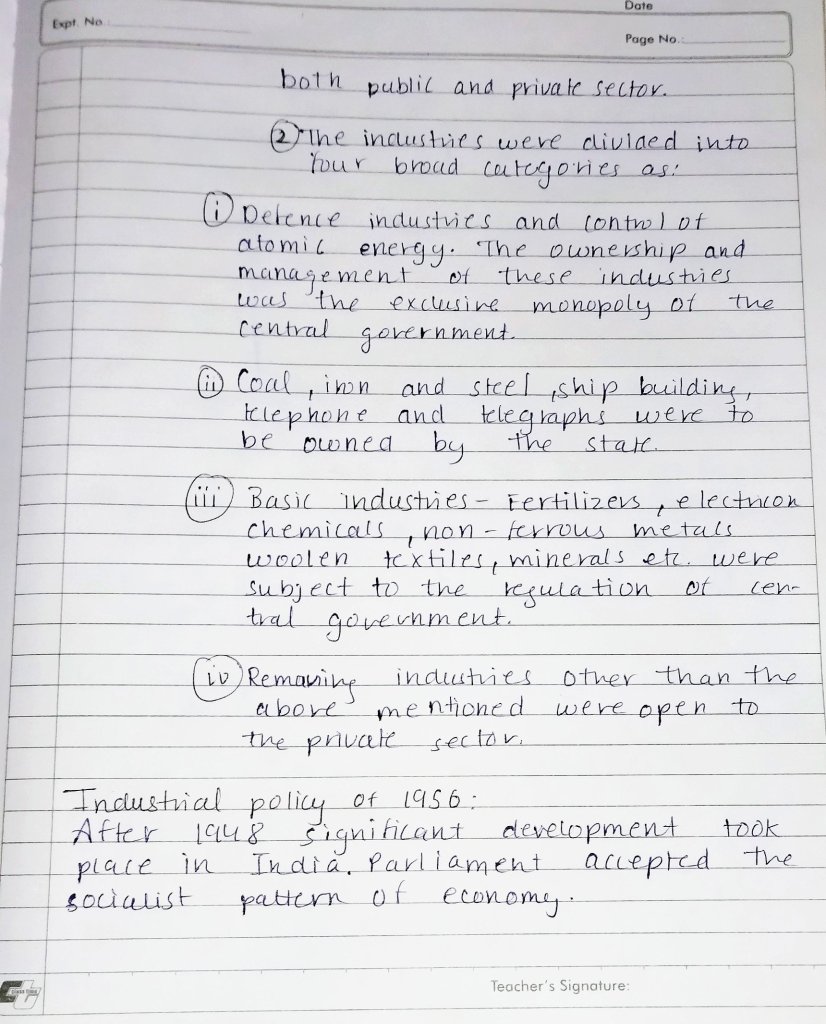 Date
Expt. No.
Page No.
both public and private sector.
② The industries were divided into
four broad categories as:
(i) Defence industries and control of
atomic energy. The ownership and
management of these industries
was the exclusive monopoly of the
central government.
(ii) Coal, iron and steel, ship building,
telephone and telegraphs were to
be owned by the state.
(iii) Basic industries - Fertilizers, electricon
chemicals, non-ferrous metals
woolen textiles, minerals etc. were
subject to the regulation of cen-
tral government.
(iv) Remaning industries other than the
above mentioned were open to
the private sector.
Industrial policy of 1956:
After 1948 significant development took
place in India. Parliament accepted the
socialist pattern of economy.
Teacher's Signature: